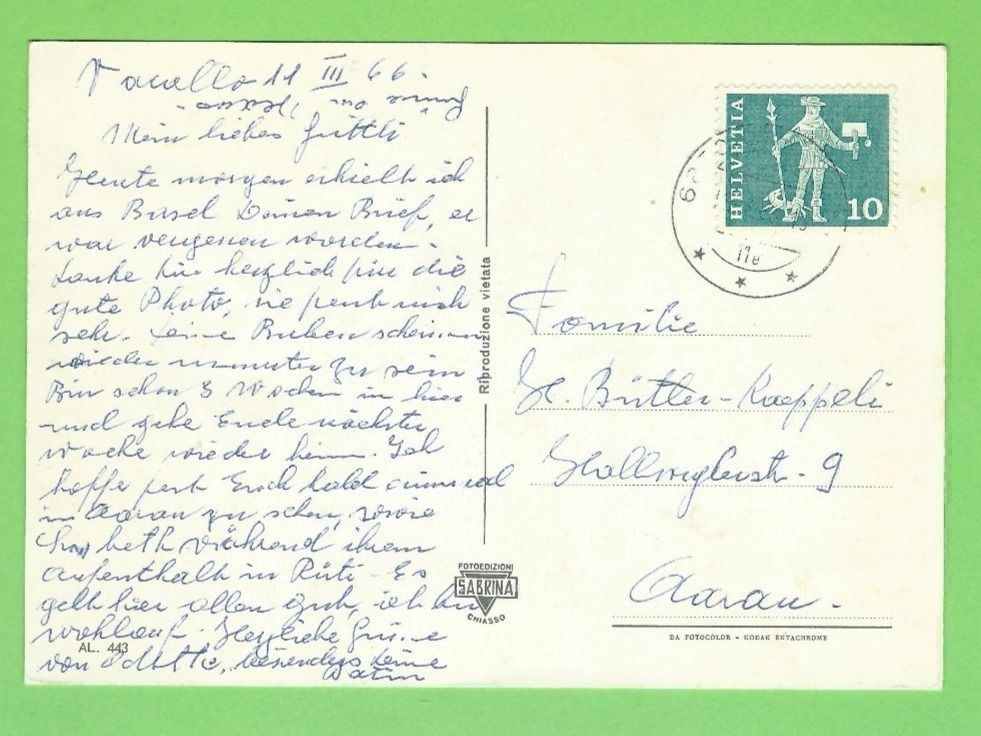 Vacallo 11 III 66.
Mein liebes
Heute morgen erhielt ich
aus Basel Deinen Brief, er
war vergessen worden.
Danke Dir herzlich für die
gute Photo, sie freut mich
sehr. Deine Buben scheinen
wieder munter zu sein
Bin schon 3 Wochen in hier
und gehe Ende nächster
Woche wieder heim. Ich
hoffe fest Euch bald einmal
in Aarau zu sehen, sowie
während ihrem
Aufenthalt in Rüti - Es
geht hier allen gut, ich bin
wohlauf. Herzliche Grüsse
von Odette, besonders Deine
AL. 443
Riproduzione vietata
FOTOEDIZIONI
SABRINA
CHIASSO
HELVETIA
10
11a
Familie
H. Bütler-Kaeppeli
Hallwylerstr. 9
Aarau.
DA FOTOCOLOR - KODAK EKTACHROME